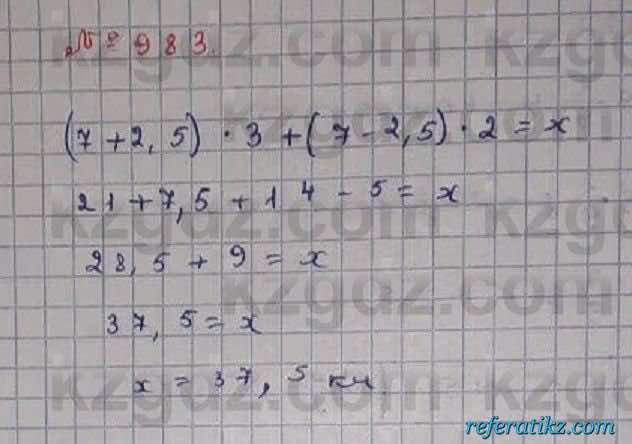 № 983.
(7 + 2,5) · 3 + (7 - 2,5) · 2 = x
21 + 7,5 + 14 - 5 = x
28,5 + 9 = x
37,5 = x
x = 37,5 км
kzgdz.com
referatikz.com